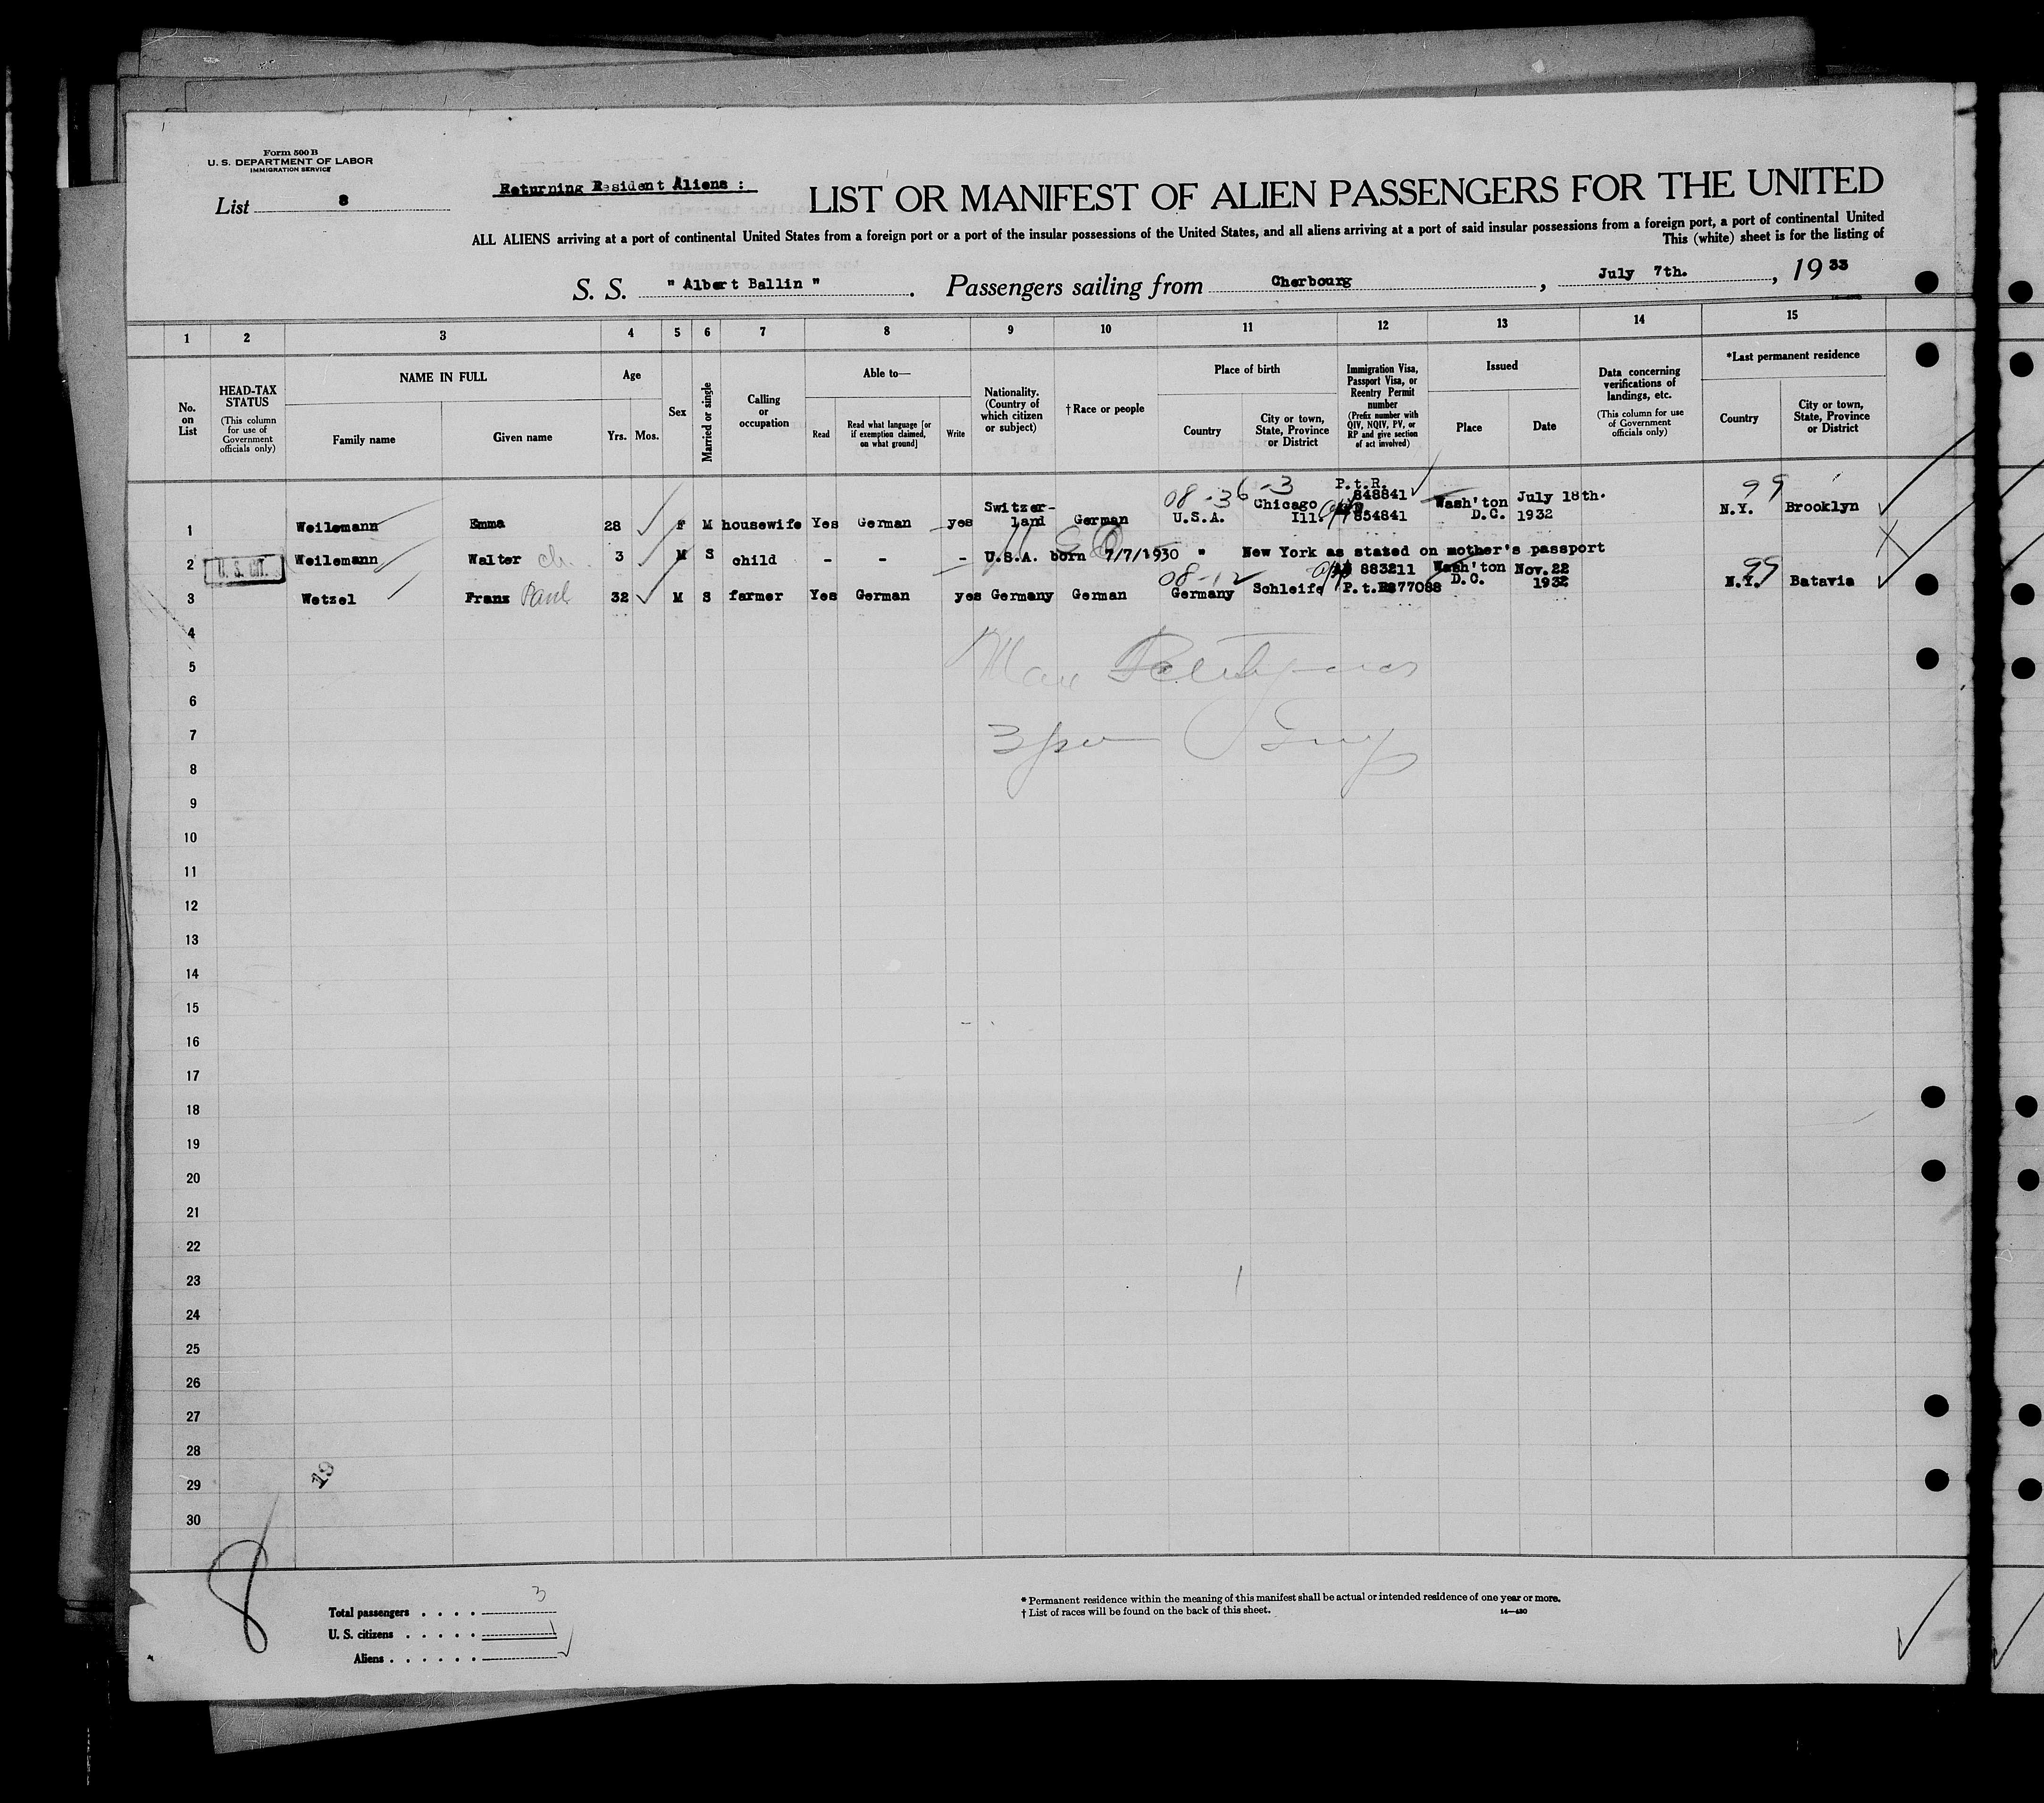 Form 500 B
U. S. DEPARTMENT OF LABOR
IMMIGRATION SERVICE
List 8
Returning Resident Aliens :
LIST OR MANIFEST OF ALIEN PASSENGERS FOR THE UNITED
ALL ALIENS arriving at a port of continental United States from a foreign port or a port of the insular possessions of the United States, and all aliens arriving at a port of said insular possessions from a foreign port, a port of continental United
This (white) sheet is for the listing of
S. S. " Albert Ballin " . Passengers sailing from Cherbourg , July 7th. , 19 33
1 2 3 4 5 6 7 8 9 10 11 12 13 14 15
No. on List
HEAD-TAX STATUS
(This column for use of Government officials only)
NAME IN FULL
Family name
Given name
Age
Yrs. Mos.
Sex
Married or single
Calling or occupation
Able to—
Read
Read what language [or if exemption claimed, on what ground]
Write
Nationality. (Country of which citizen or subject)
† Race or people
Place of birth
Country
City or town, State, Province or District
Immigration Visa, Passport Visa, or Reentry Permit number
(Prefix number with QIV, NQIV, PV, or RP and give section of act involved)
Issued
Place
Date
Data concerning verifications of landings, etc.
(This column for use of Government officials only)
*Last permanent residence
Country
City or town, State, Province or District
08-36-3 P.t.R. 99
Switzer- Chicago 848841 Wash'ton July 18th.
1 Weilemann Emma 28 F M housewife Yes German yes land German U.S.A. Ill. 854841 D.C. 1932 N.Y. Brooklyn
2 U. S. CIT. Weilemann Walter ch. 3 M S child - - - U.S.A. born 7/7/1930 " New York as stated on mother's passport
08-12 883211 Wash'ton Nov. 22 99
3 Wetzel Franz Paul 32 M S farmer Yes German yes Germany German Germany Schleife P.t.R877088 D.C. 1932 N.Y. Batavia
4
5
6
7
8
9
10
11
12
13
14
15
16
17
18
19
20
21
22
23
24
25
26
27
28
29
30
19
8
Total passengers . . . . 3
U. S. citizens . . . . . 1
Aliens . . . . . .
* Permanent residence within the meaning of this manifest shall be actual or intended residence of one year or more.
† List of races will be found on the back of this sheet.
14—430